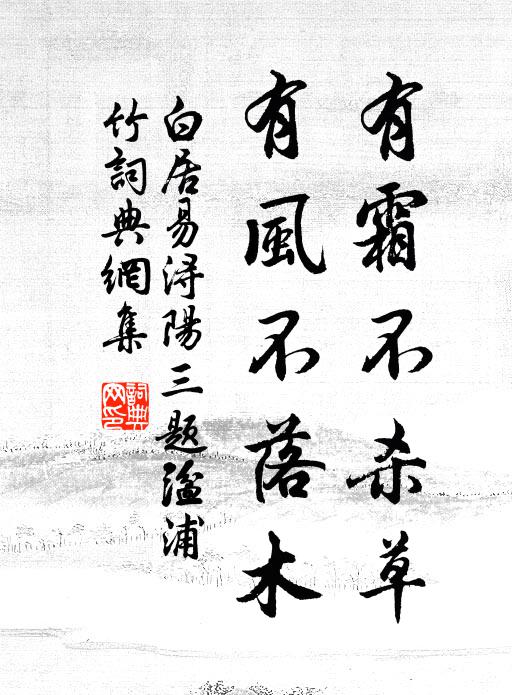 有霜不杀草
有風不落木
白居易潯陽三题湓浦
竹詞典網集
詞典網印